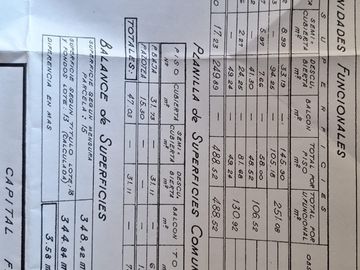 NIDADES FUNCIONALES
SUPERFICIES
SEMI- CUBIERTA m² DESCUBIERTA m² BALCON m² TOTAL POR PISO m² TOTAL POR U.FUNCIONAL m² OB
8.39 33.19 — 145.30
— 94.86 — 105.18 251.08
5.89 7.66 — 58.00
— 41.30 — 48.52 106.52
2.87 24.26 — 81.68
— 49.24 — 49.24 130.92
17.23 249.69 — 488.52 488.52
PLANILLA DE SUPERFICIES COMUN
PISO CUBIERTA m² SEMI- CUBIERTA m² DESCUBIERTA m² BALCON m² TO
P.BAJA 31.73 — 31.11 —
P.AZOTEA 15.30 — — —
TOTALES: 47.03 — 31.11 —
BALANCE DE SUPERFICIES
SUPERFICIE SEGUN MENSURA
PARCELA 15 348.42 m
SUPERFICIE SEGUN TITULO LOTE: 18
Y FONDOS LOTE: 13 (CALCULADA) 344.84 m
DIFERENCIA EN MAS 3.58 m
CAPITAL F